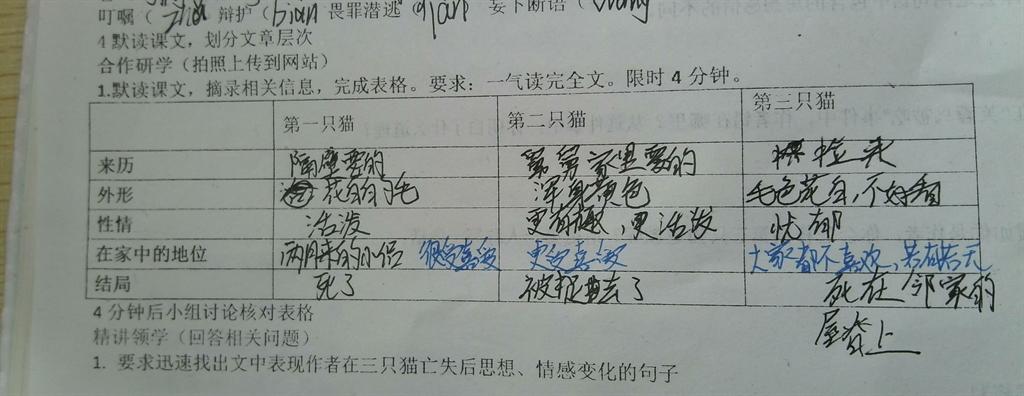 叮嘱（zhu 辩护（bian 畏罪潜逃 qian 妄下断语（wang
4 默读课文，划分文章层次
合作研学（拍照上传到网站）
1.默读课文，摘录相关信息，完成表格。要求：一气读完全文。限时 4 分钟。
第一只猫 第二只猫 第三只猫
来历 隔壁要的 舅舅家里要的 捡来
外形 花白的毛 浑身黄色 毛色花白，不好看
性情 活泼 更有趣，更活泼 忧郁
在家中的地位 两月来的小侣 很受喜爱 更受喜爱 大家都不喜欢，若有若无
结局 死了 被捉去了 死在邻家的
屋脊上
4 分钟后小组讨论核对表格
精讲领学（回答相关问题）
1. 要求迅速找出文中表现作者在三只猫亡失后思想、情感变化的句子